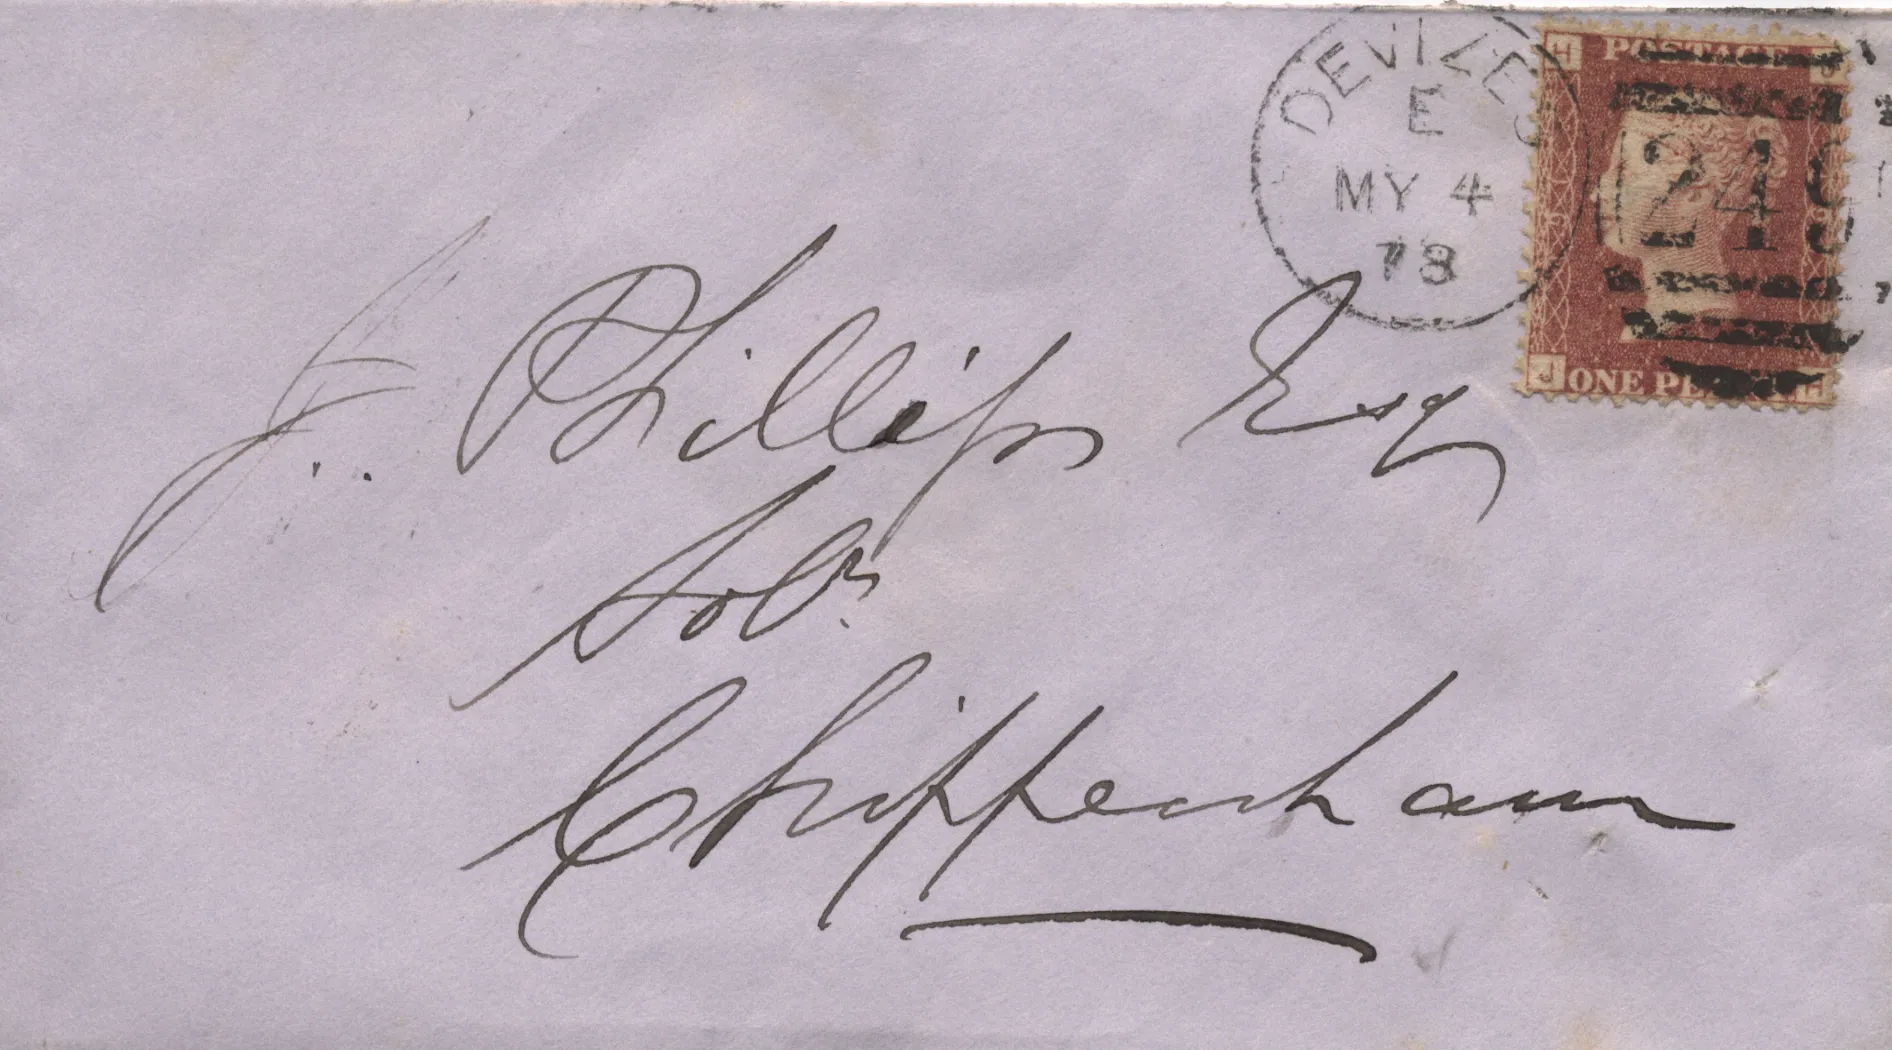 DEVIZES
E
MY 4
78
H POSTAGE J
24
J ONE PE H
J. Phillips Esq
Solr.
Chippenham